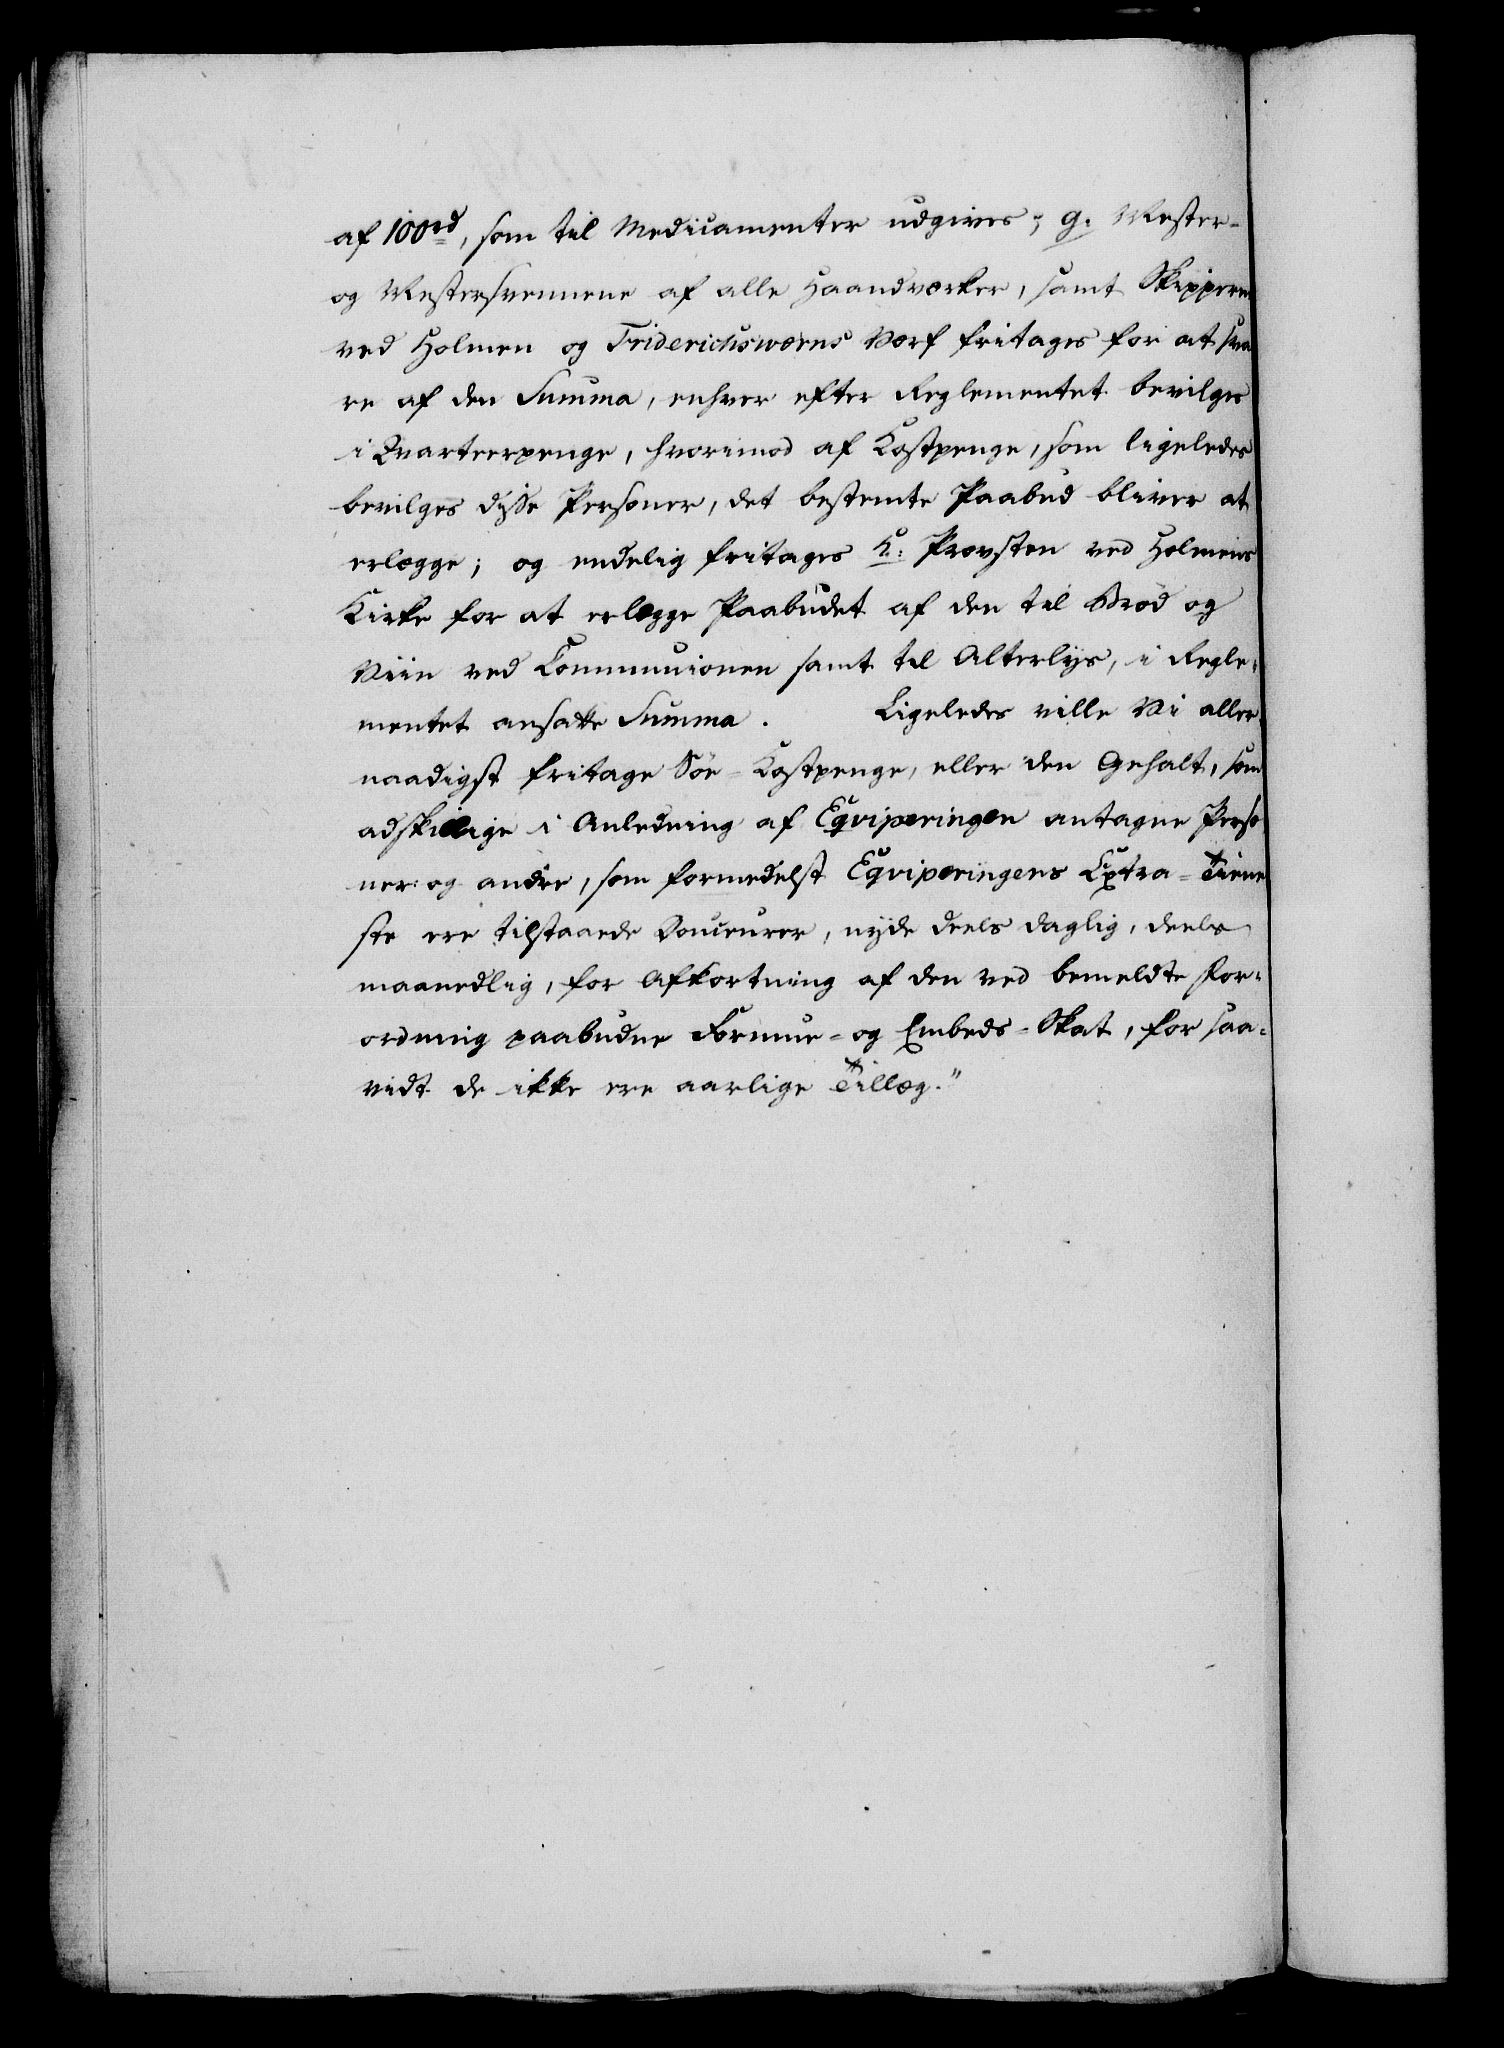 af 100rd, som til Medicamenter udgives; g. Mester-
og Mestersvennene af alle Haandværker, samt Skipperen
ved Holmen og Friderichsværns Værf fritages for at sva
re af den Summa, enhver efter Reglementet bevilges
i Qvarteerpenge, hvorimod af Kostpenge, som ligeledes
bevilges disse Personer, det bestemte Paabud bliver at
erlægge; og endelig fritages h: Provsten ved Holmens
Kirke for at erlægge Paabudet af den til Brød og
Viin ved Communionen samt til Alterlys, i Regle-
mentet ansatte Summa. Ligeledes ville Vi aller
naadigst fritage Söe-Kostpenge, eller den Gehalt, som
adskillige i Anledning af Eqviperingen antagne Perso
ner og andre, som formedelst Eqviperingens Extra-Tiene
ste ere tilstaaede Douceurer, nyde deels daglig, deels
maanedlig, for Afkortning af den ved bemeldte For-
ordning paabudne Formue- og Embeds-Skat, for saa-
vidt de ikke ere aarlige Tillæg."